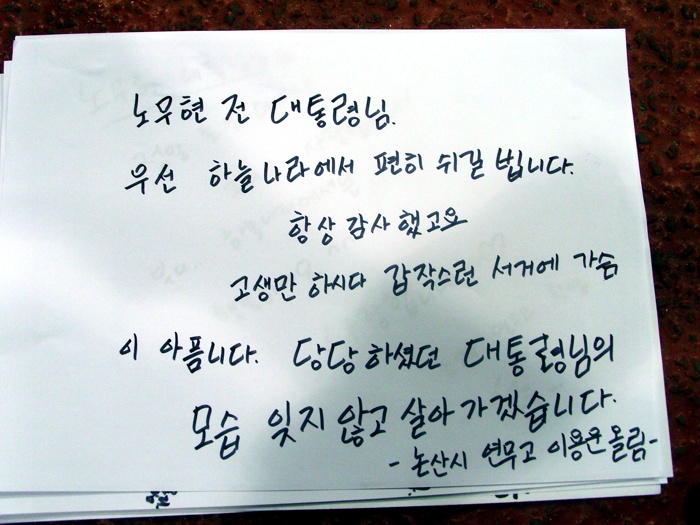 노무현 전 대통령님.
우선 하늘나라에서 편히 쉬길 빕니다.
항상 감사했고요
고생만 하시다 갑작스런 서거에 가슴
이 아픕니다. 당당하셨던 대통령님의
모습 잊지 않고 살아가겠습니다.
- 논산시 연무고 이용운 올림-